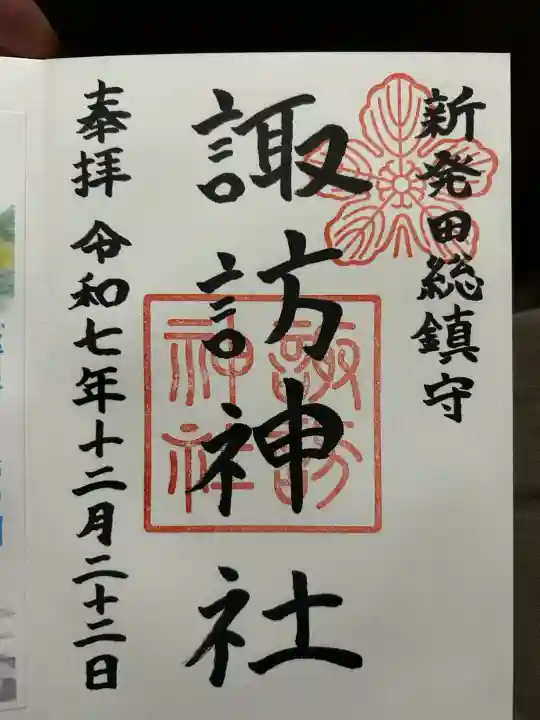 新発田総鎮守
諏訪神社
諏訪神社
奉拝 令和七年十二月二十二日